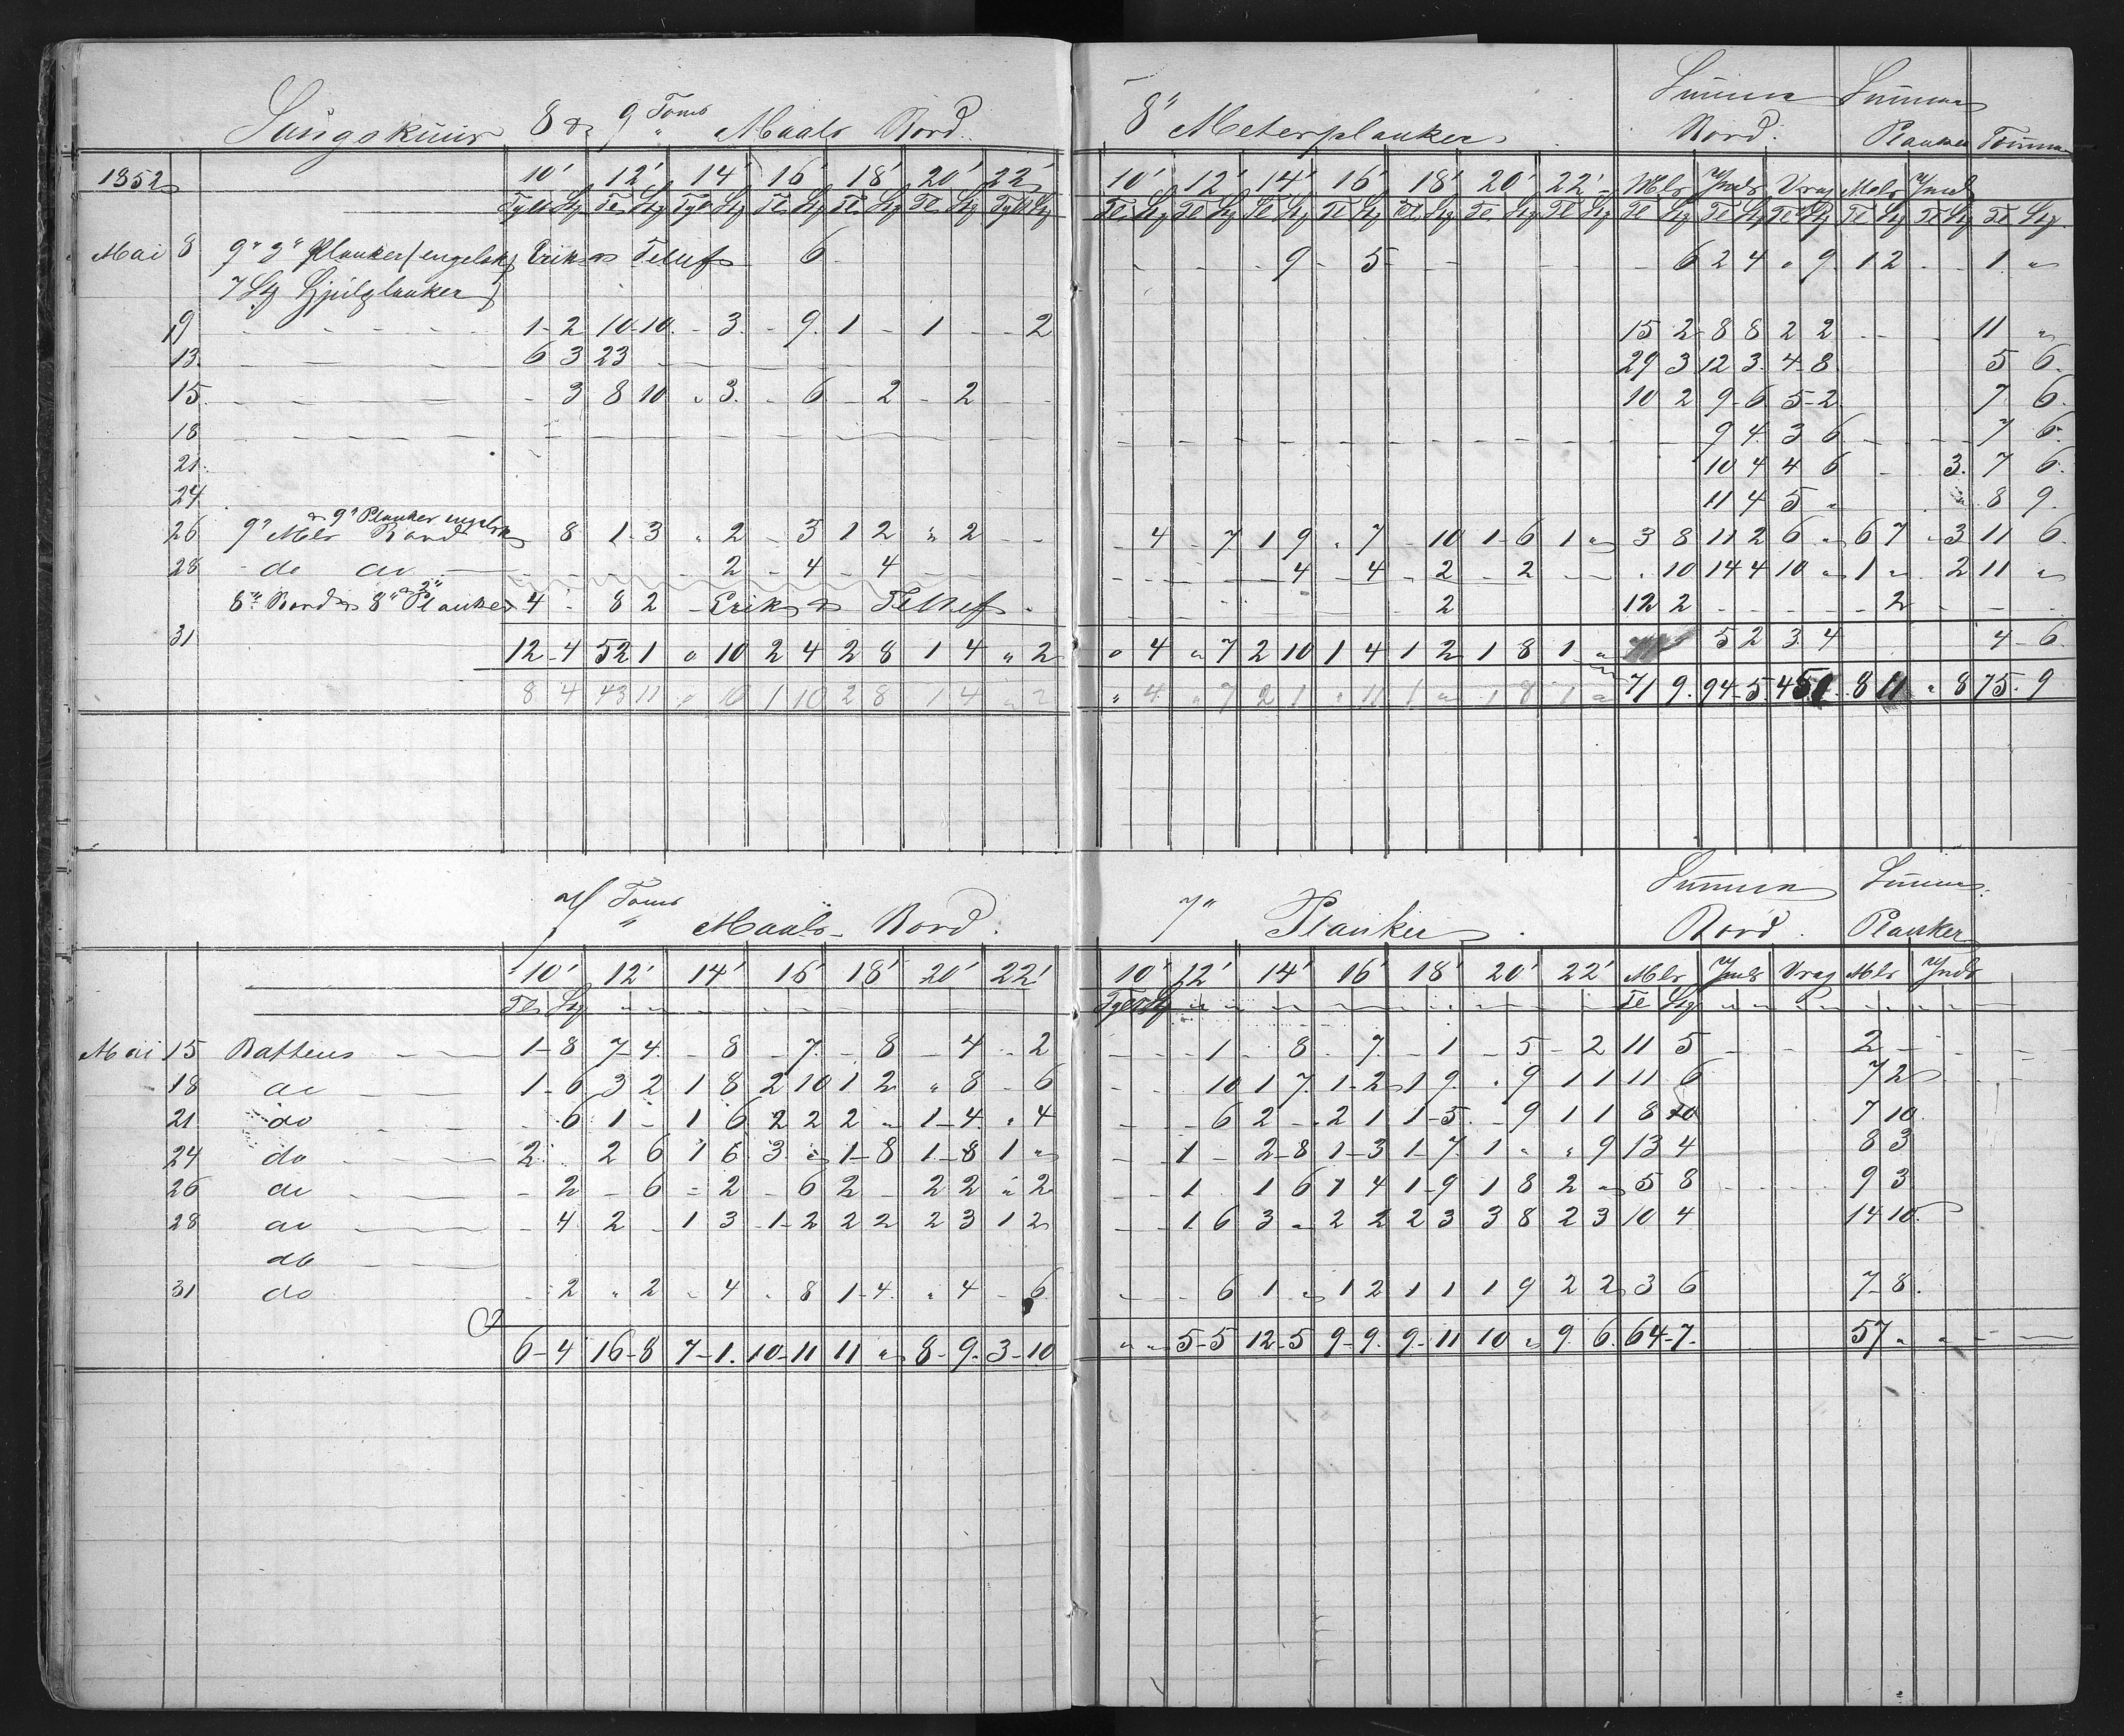 8 & 9 Toms Maals Bord. 8" Meterplanker Summa Bord. Summa Planker Tømmer
1852 10' 12' 14' 16' 18' 20' 22' 10' 12' 14' 16' 18' 20' 22' Mls Unds Vrag Mls Unds
Tylt Stg Tl Stg Tylt Stg Tl Stg Tl Stg Tl Stg Tylt Stg Tl Stg Tl Stg Tl Stg Tl Stg Tl Stg Tl Stg Tl Stg Tl Stg Tl Stg Tl Stg Tl Stg Tl Stg Tl Stg
Mai 8 9" 3" Planker (engelsk) 6 - - - - 9 - 5 - - - - - 6 2 4 " 9 1 2 - - 1 "
7 Stg
9 - - - - 1-2 10-10 - 3 - 9 1 - 1 - - 2 15 2 8 8 2 2 - - 11 "
13 6 3 23 - 29 3 12 3 4-8 5 6
15 - 3 8 10 " 3 - 6 - 2 - 2 - - 10 2 9-6 5-2 7 6
18 - - - - 9 4 3 6 - - 7 6
21 10 4 4 6 - - 3 7 6
24 11 4 5 " " 8 9
& 9" Planker engelsk
26 9" Mls Bord 8 1-3 " 2 - 3 1 2 " 2 - - - 4 - 7 1 9 " 7 - 10 1-6 1 " 3 8 11 2 6 " 6 7 " 3 11 6
28 - do do - - - 2 - 4 - 4 - - - - - 4 - 4 - 2 - 2 - - " 10 14 4 10 " 1 " 2 11 "
8" Bord & 8" 2" Planker 4 - 8 2 - 2 12 2 - - - - 2 - - -
31 12-4 52 1 " 10 2 4 2 8 1 4 " 2 " 4 " 7 2 10 1 4 1 2 1 8 1 " 5 2 3 4 4-6
8 4 43 11 " 10 1 10 2 8 1 4 " 2 " 4 " 7 2 1 " 11 1 " 1 8 1 " 71 9 94-5 8 11 " 8 75 9
7 Toms Maals Bord. 7" Planker Summa Bord. Summa Planker
10' 12' 14' 16' 18' 20' 22' 10' 12' 14' 16' 18' 20' 22' Mls Unds Vrag Mls Unds
Tl Stg " " Tylt Stg " " Tl Stg " "
Mai 15 Battens - - 1-8 7-4 - 8 - 7 - 8 - 4 - 2 - - 1 - 8 - 7 - 1 - 5 - 2 11 5 - - 2 -
18 do - - 1-6 3 2 1 8 2 10 1 2 " 8 - 6 - - 10 1 7 1-2 1 9 " 9 1 1 11 6 7 2
21 do - 6 1 - 1 6 2 2 2 " 1-4 " 4 - - 6 2 - 2 1 1-5 - 9 1 1 8 10 7 10
24 do - - 2 2 6 1 6 3 " 1-8 1-8 1 " - - 1 - 2-8 1-3 1-7 1 " " 9 13 4 8 3
26 do - - - 2 - 6 - 2 - 6 2 - 2 2 " 2 - - 1 1 6 1 4 1-9 1 8 2 " 5 8 9 3
28 do - - - 4 2 - 1 3 1-2 2 2 2 3 1 2 - - 1 6 3 " 2 2 2 3 3 8 2 3 10 4 14 10
do
31 do - 2 " 2 " 4 " 8 1-4 " 4 - 6 - - 6 1 " 1 2 1 1 1 9 2 2 3 6 7-8
6-4 16-8 7-1 10-11 11 " 8-9 3-10 " " 5-5 12-5 9-9 9-11 10 " 9 6 64-7 57 "